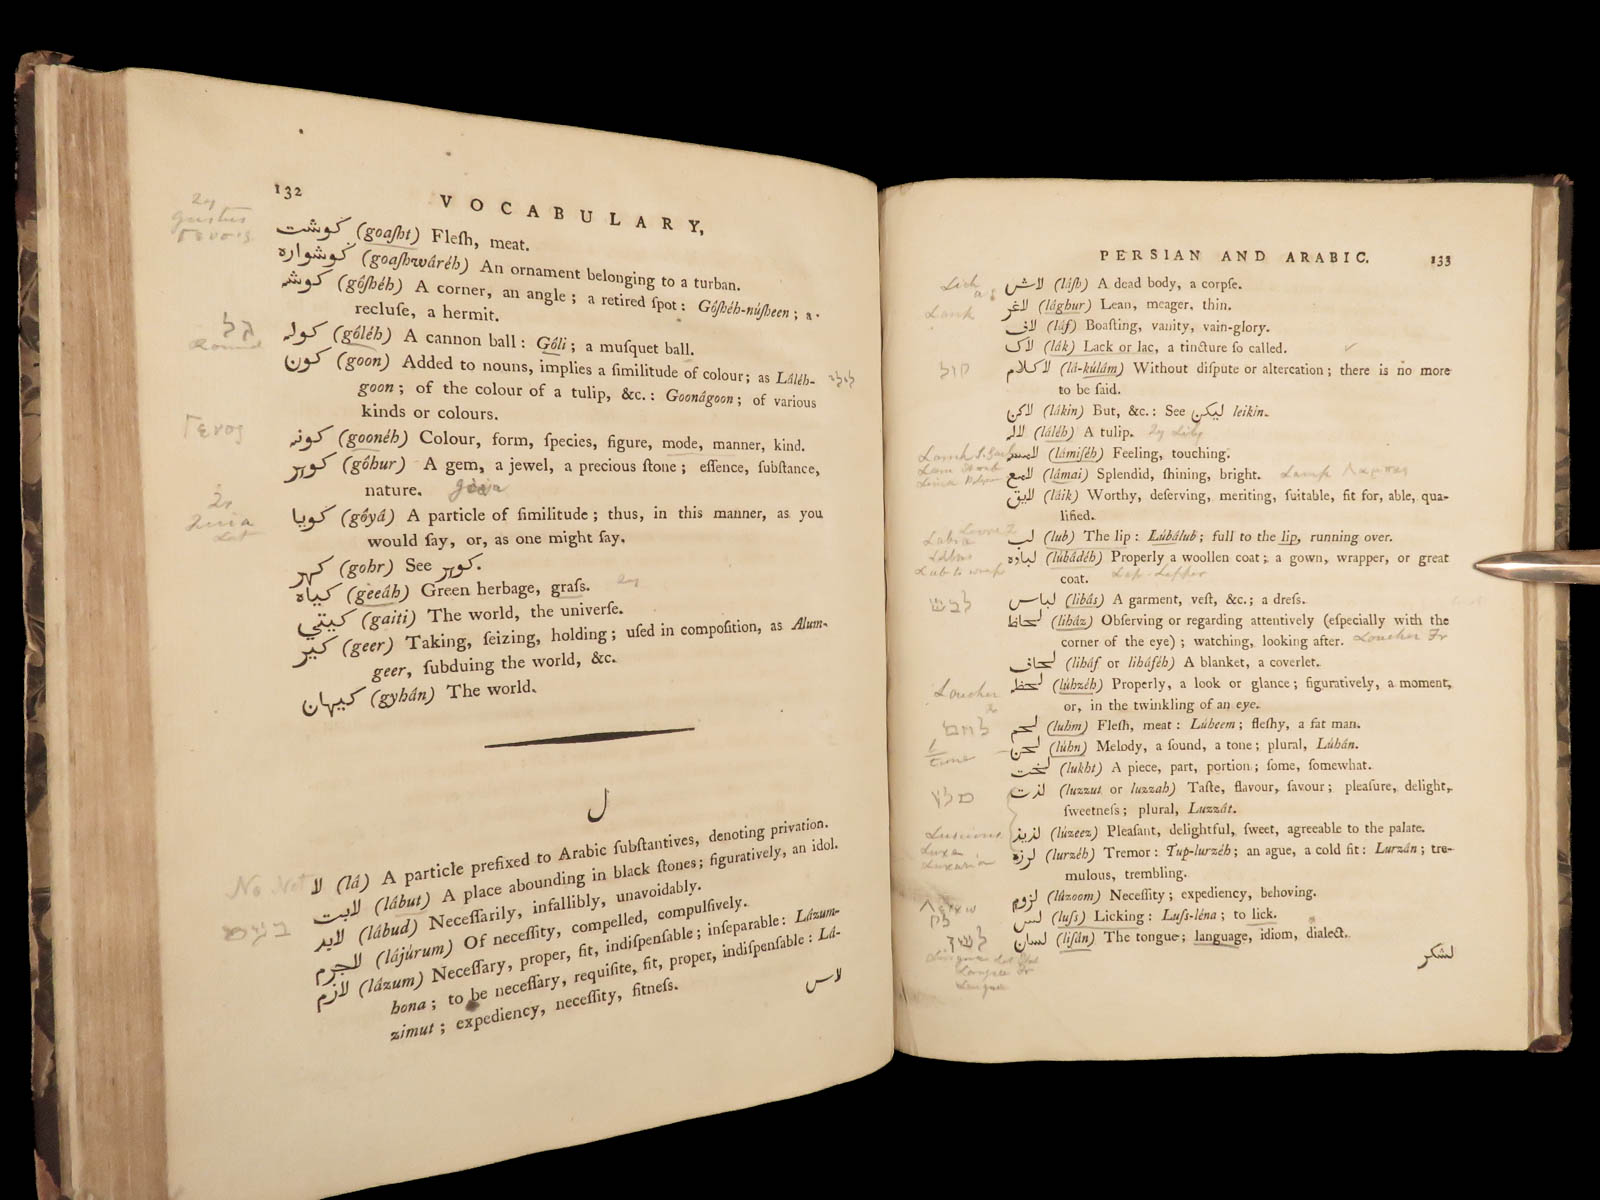 132
VOCABULARY,
كوشت (goaſht) Fleſh, meat.
كوشواره (goaſhwáréh) An ornament belonging to a turban.
كوشه (góſhéh) A corner, an angle; a retired ſpot: Góſhéh-núſheen; a
recluſe, a hermit.
كوله (góléh) A cannon ball: Góli; a muſquet ball.
كون (goon) Added to nouns, implies a ſimilitude of colour; as Láléh-
goon; of the colour of a tulip, &c.: Goonágoon; of various
kinds or colours.
كونه (goonéh) Colour, form, ſpecies, figure, mode, manner, kind.
كوہر (góhur) A gem, a jewel, a precious ſtone; eſſence, ſubſtance,
nature.
كويا (góyá) A particle of ſimilitude; thus, in this manner, as you
would ſay, or, as one might ſay.
كہر (gohr) See كوہر.
كياه (geeáh) Green herbage, graſs.
كيتي (gaiti) The world, the univerſe.
كير (geer) Taking, ſeizing, holding; uſed in compoſition, as Alum-
geer, ſubduing the world, &c.
كيهان (gyhán) The world.
ل
No Not
لا (lá) A particle prefixed to Arabic ſubſtantives, denoting privation.
لابت (lábut) A place abounding in black ſtones; figuratively, an idol.
لابد (lábud) Neceſſarily, infallibly, unavoidably.
لاجرم (lájúrum) Of neceſſity, compelled, compulſively.
لازم (lázum) Neceſſary, proper, fit, indiſpenſable; inſeparable: Lázum-
hona; to be neceſſary, requiſite, fit, proper, indiſpenſable: Lá-
zimut; expediency, neceſſity, fitneſs.
لاس
PERSIAN AND ARABIC. 133
لاش (láſh) A dead body, a corpſe.
لاغر (lághur) Lean, meager, thin.
لاف (láf) Boaſting, vanity, vain-glory.
لاك (lák) Lack or lac, a tincture ſo called.
لاكلام (lá-kúlám) Without diſpute or altercation; there is no more
to be ſaid.
لاكن (lákin) But, &c.: See ليكن leikin.
لاله (láléh) A tulip.
لامسه (lámiſéh) Feeling, touching.
لامع (lámai) Splendid, ſhining, bright.
لايق (láik) Worthy, deſerving, meriting, ſuitable, fit for, able, qua-
lified.
لب (lub) The lip: Lúbálub; full to the lip, running over.
لباده (lúbádéh) Properly a woollen coat; a gown, wrapper, or great
coat.
לבש
لباس (libás) A garment, veſt, &c.; a dreſs.
لحاظ (liház) Obſerving or regarding attentively (eſpecially with the
corner of the eye); watching, looking after.
لحاف (liháf or liháféh) A blanket, a coverlet.
لحظه (lúhzéh) Properly, a look or glance; figuratively, a moment,
or, in the twinkling of an eye.
לחם
لحم (luhm) Fleſh, meat: Lúheem; fleſhy, a fat man.
لحن (lúhn) Melody, a ſound, a tone; plural, Lúhán.
لخت (lukht) A piece, part, portion; ſome, ſomewhat.
لذت (luzzut or luzzah) Taſte, flavour, ſavour; pleaſure, delight,
ſweetneſs; plural, Luzzát.
لذيذ (lúzeez) Pleaſant, delightful, ſweet, agreeable to the palate.
لرزه (lurzéh) Tremor: Tup-lurzéh; an ague, a cold fit: Lurzán; tre-
mulous, trembling.
لزوم (lúzoom) Neceſſity; expediency, behoving.
لس (luſs) Licking: Luſs-léna; to lick.
لسان (liſán) The tongue; language, idiom, dialect.
لشكر